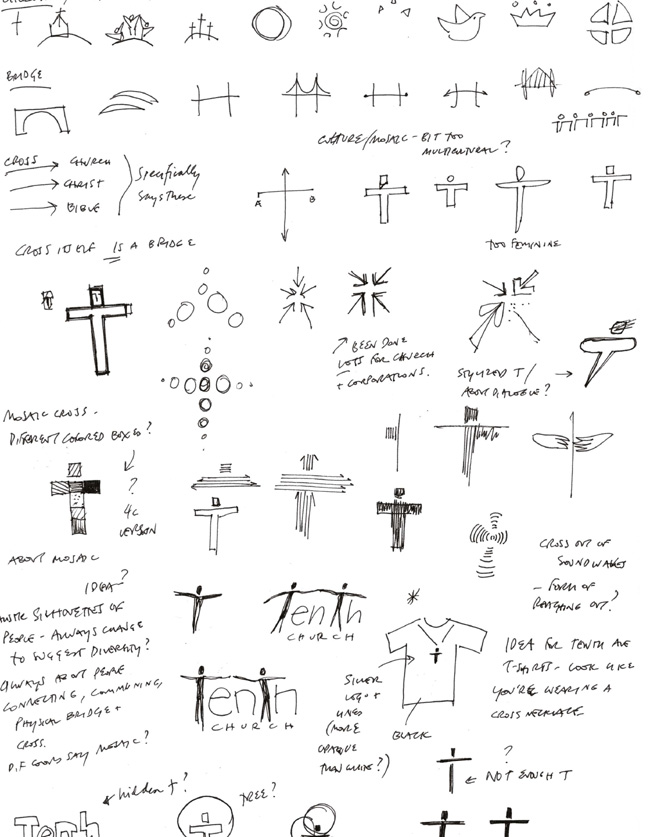 BRIDGE
CULTURE/MOSAIC - BIT TOO
MULTICULTURAL?
CROSS → CHURCH
→ CHRIST
→ BIBLE
Specifically
says these
A B
CROSS ITSELF IS A BRIDGE
TOO FEMININE
BEEN DONE
LOTS FOR CHURCH
+ CORPORATIONS.
STYLIZED T/
ABOUT DIALOGUE?
MOSAIC CROSS -
DIFFERENT COLORED BOXES?
?
4C
VERSION
ABOUT MOSAIC
CROSS OUT OF
SOUNDWAVES
- FORM OF
REACHING OUT?
IDEA?
SILHOUETTES OF
PEOPLE - ALWAYS CHANGE
TO SUGGEST DIVERSITY?
ALWAYS ABOUT PEOPLE
CONNECTING, COMMUNING,
PHYSICAL BRIDGE +
CROSS.
DIF COLORS SAY MOSAIC?
TenTh
CHURCH
TenTh
CHURCH
*
SILVER
LOGO +
LINES
(MORE
OPAQUE
THAN WHITE?)
BLACK
IDEA FOR TENTH AVE
T-SHIRTS - LOOK LIKE
YOU'RE WEARING A
CROSS NECKLACE
?
← NOT ENOUGH T
hidden t?
TREE?
Tenth